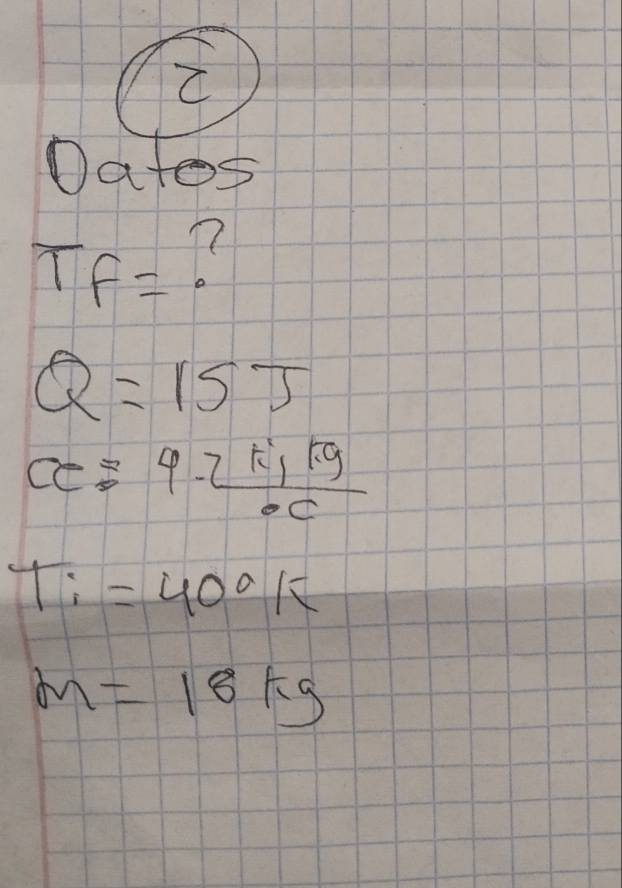 2
Datos
Tf = ?
Q = 15 J
ce = 4.2 kj kg
°C
Ti = 40° K
m = 18 kg